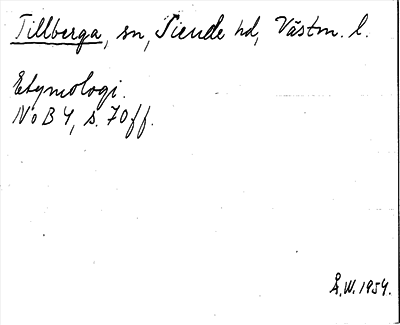 Tillberga, sn, Siende hd, Västm. l.
Etymologi.
NoB 4, s. 70 ff.
Å.W. 1954.